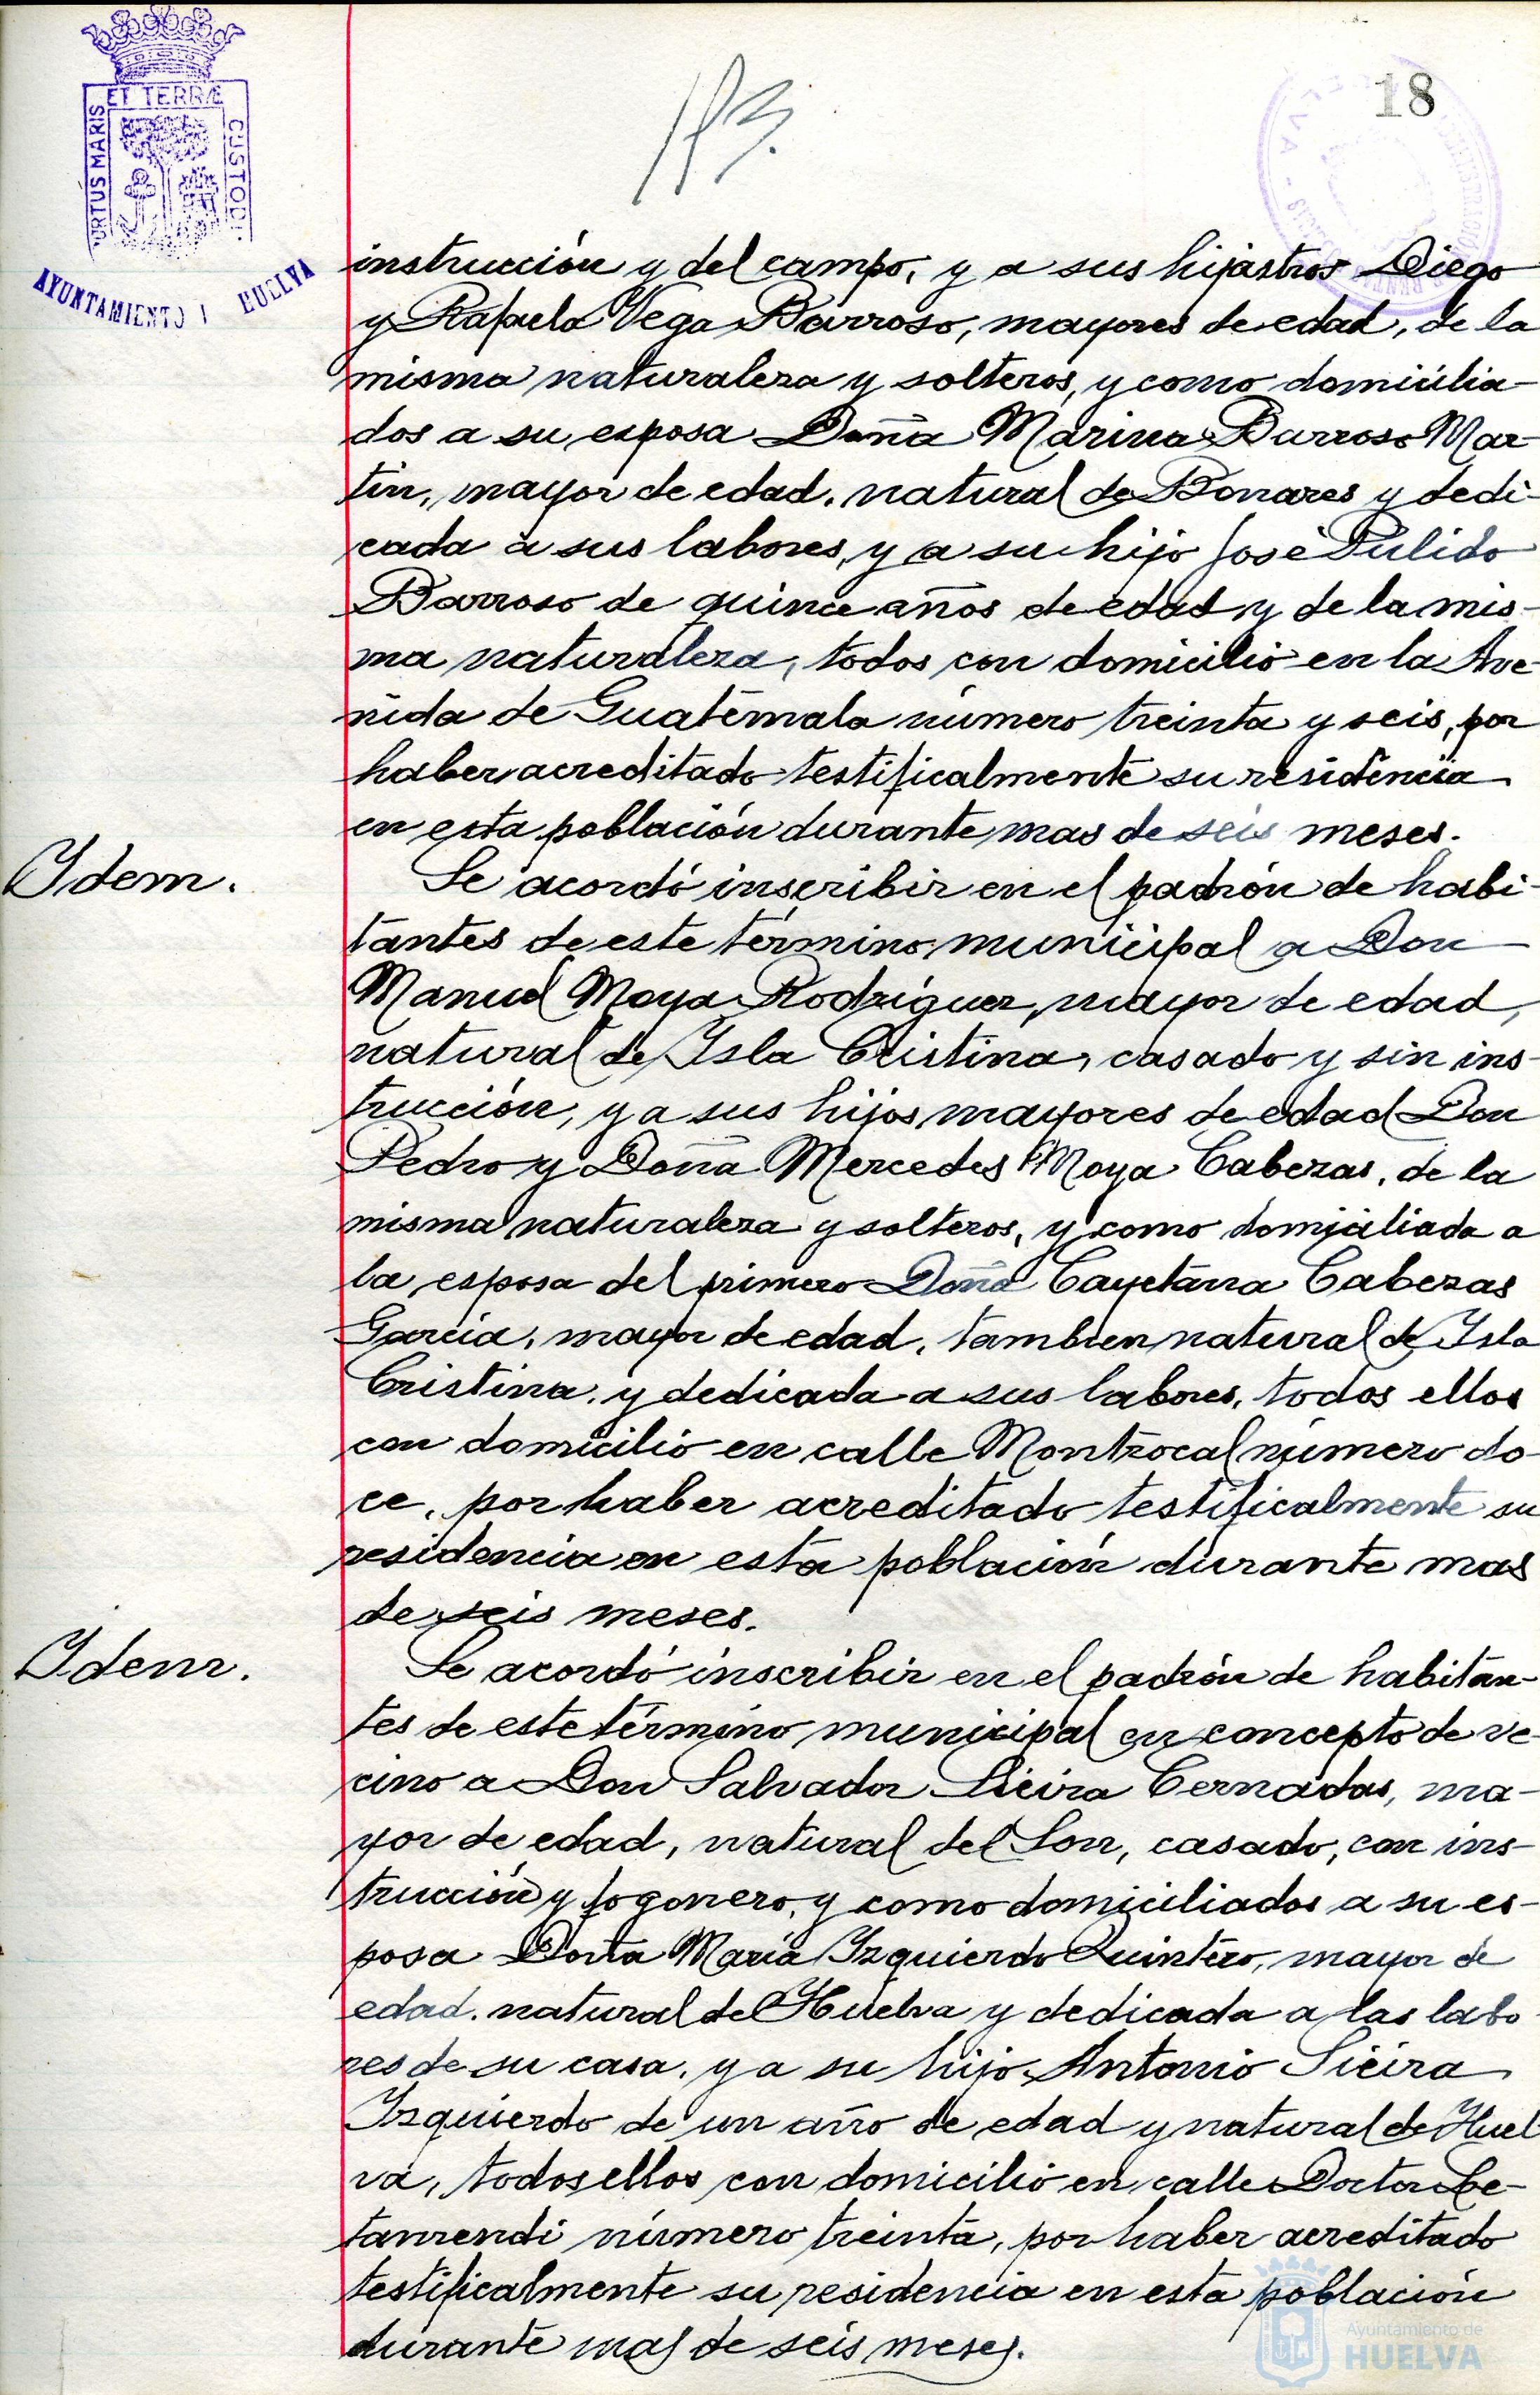 ET TERRÆ
PORTUS MARIS
CUSTODI
AYUNTAMIENTO HUELVA
18
instrucción y del campo, y a sus hijastros Diego
y Rafaela Vega Barroso, mayores de edad, de la
misma naturaleza y solteros, y como domicilia-
dos a su esposa Doña Marina Barroso Mar-
tin, mayor de edad, natural de Bonares y dedi-
cada a sus labores, y a su hijo José Pulido
Barroso de quince años de edad y de la mis-
ma naturaleza, todos con domicilio en la Ave-
nida de Guatemala número treinta y seis, por
haber acreditado testificalmente su residencia
en esta población durante mas de seis meses.
Idem.
Se acordó inscribir en el padrón de habi-
tantes de este término municipal a Don
Manuel Moya Rodriguez, mayor de edad,
natural de Isla Cristina, casado y sin ins-
trucción, y a sus hijos mayores de edad Don
Pedro y Doña Mercedes Moya Cabezas, de la
misma naturaleza y solteros, y como domiciliada a
la esposa del primero Doña Cayetana Cabezas
Garcia, mayor de edad, tambien natural de Isla
Cristina, y dedicada a sus labores, todos ellos
con domicilio en calle Montrocal número do-
ce, por haber acreditado testificalmente su
residencia en esta población durante mas
de seis meses.
Idem.
Se acordó inscribir en el padrón de habitan-
tes de este término municipal en concepto de ve-
cino a Don Salvador Sieira Cernadas, ma-
yor de edad, natural del Son, casado, con ins-
trucción y fogonero, y como domiciliados a su es-
posa Doña María Izquierdo Quintero, mayor de
edad, natural de Huelva y dedicada a las labo-
res de su casa, y a su hijo Antonio Sieira
Izquierdo de un año de edad y natural de Huel
va, todos ellos con domicilio en calle Doctor
número treinta, por haber acreditado
testificalmente su residencia en esta población
durante mas de seis meses.
Ayuntamiento de
HUELVA